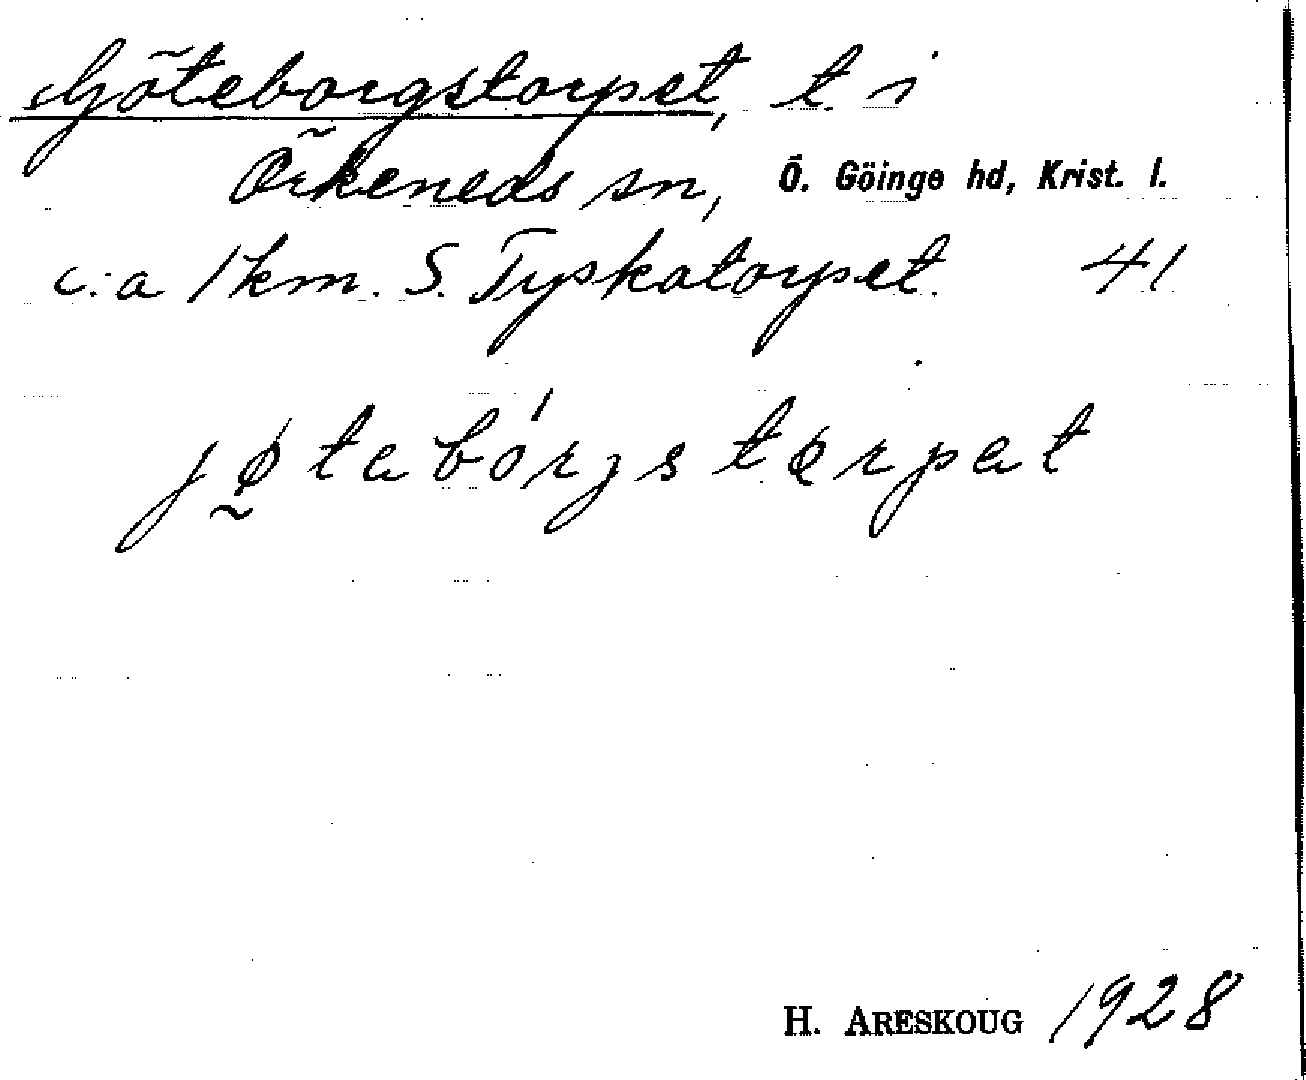 Göteborgstorpet, t. i
Örkeneds sn, Ö. Göinge hd, Krist. l.
c:a 1 km. S. Tyskatorpet. 41
jø̰tabórʒstørpat
H. ARESKOUG 1928